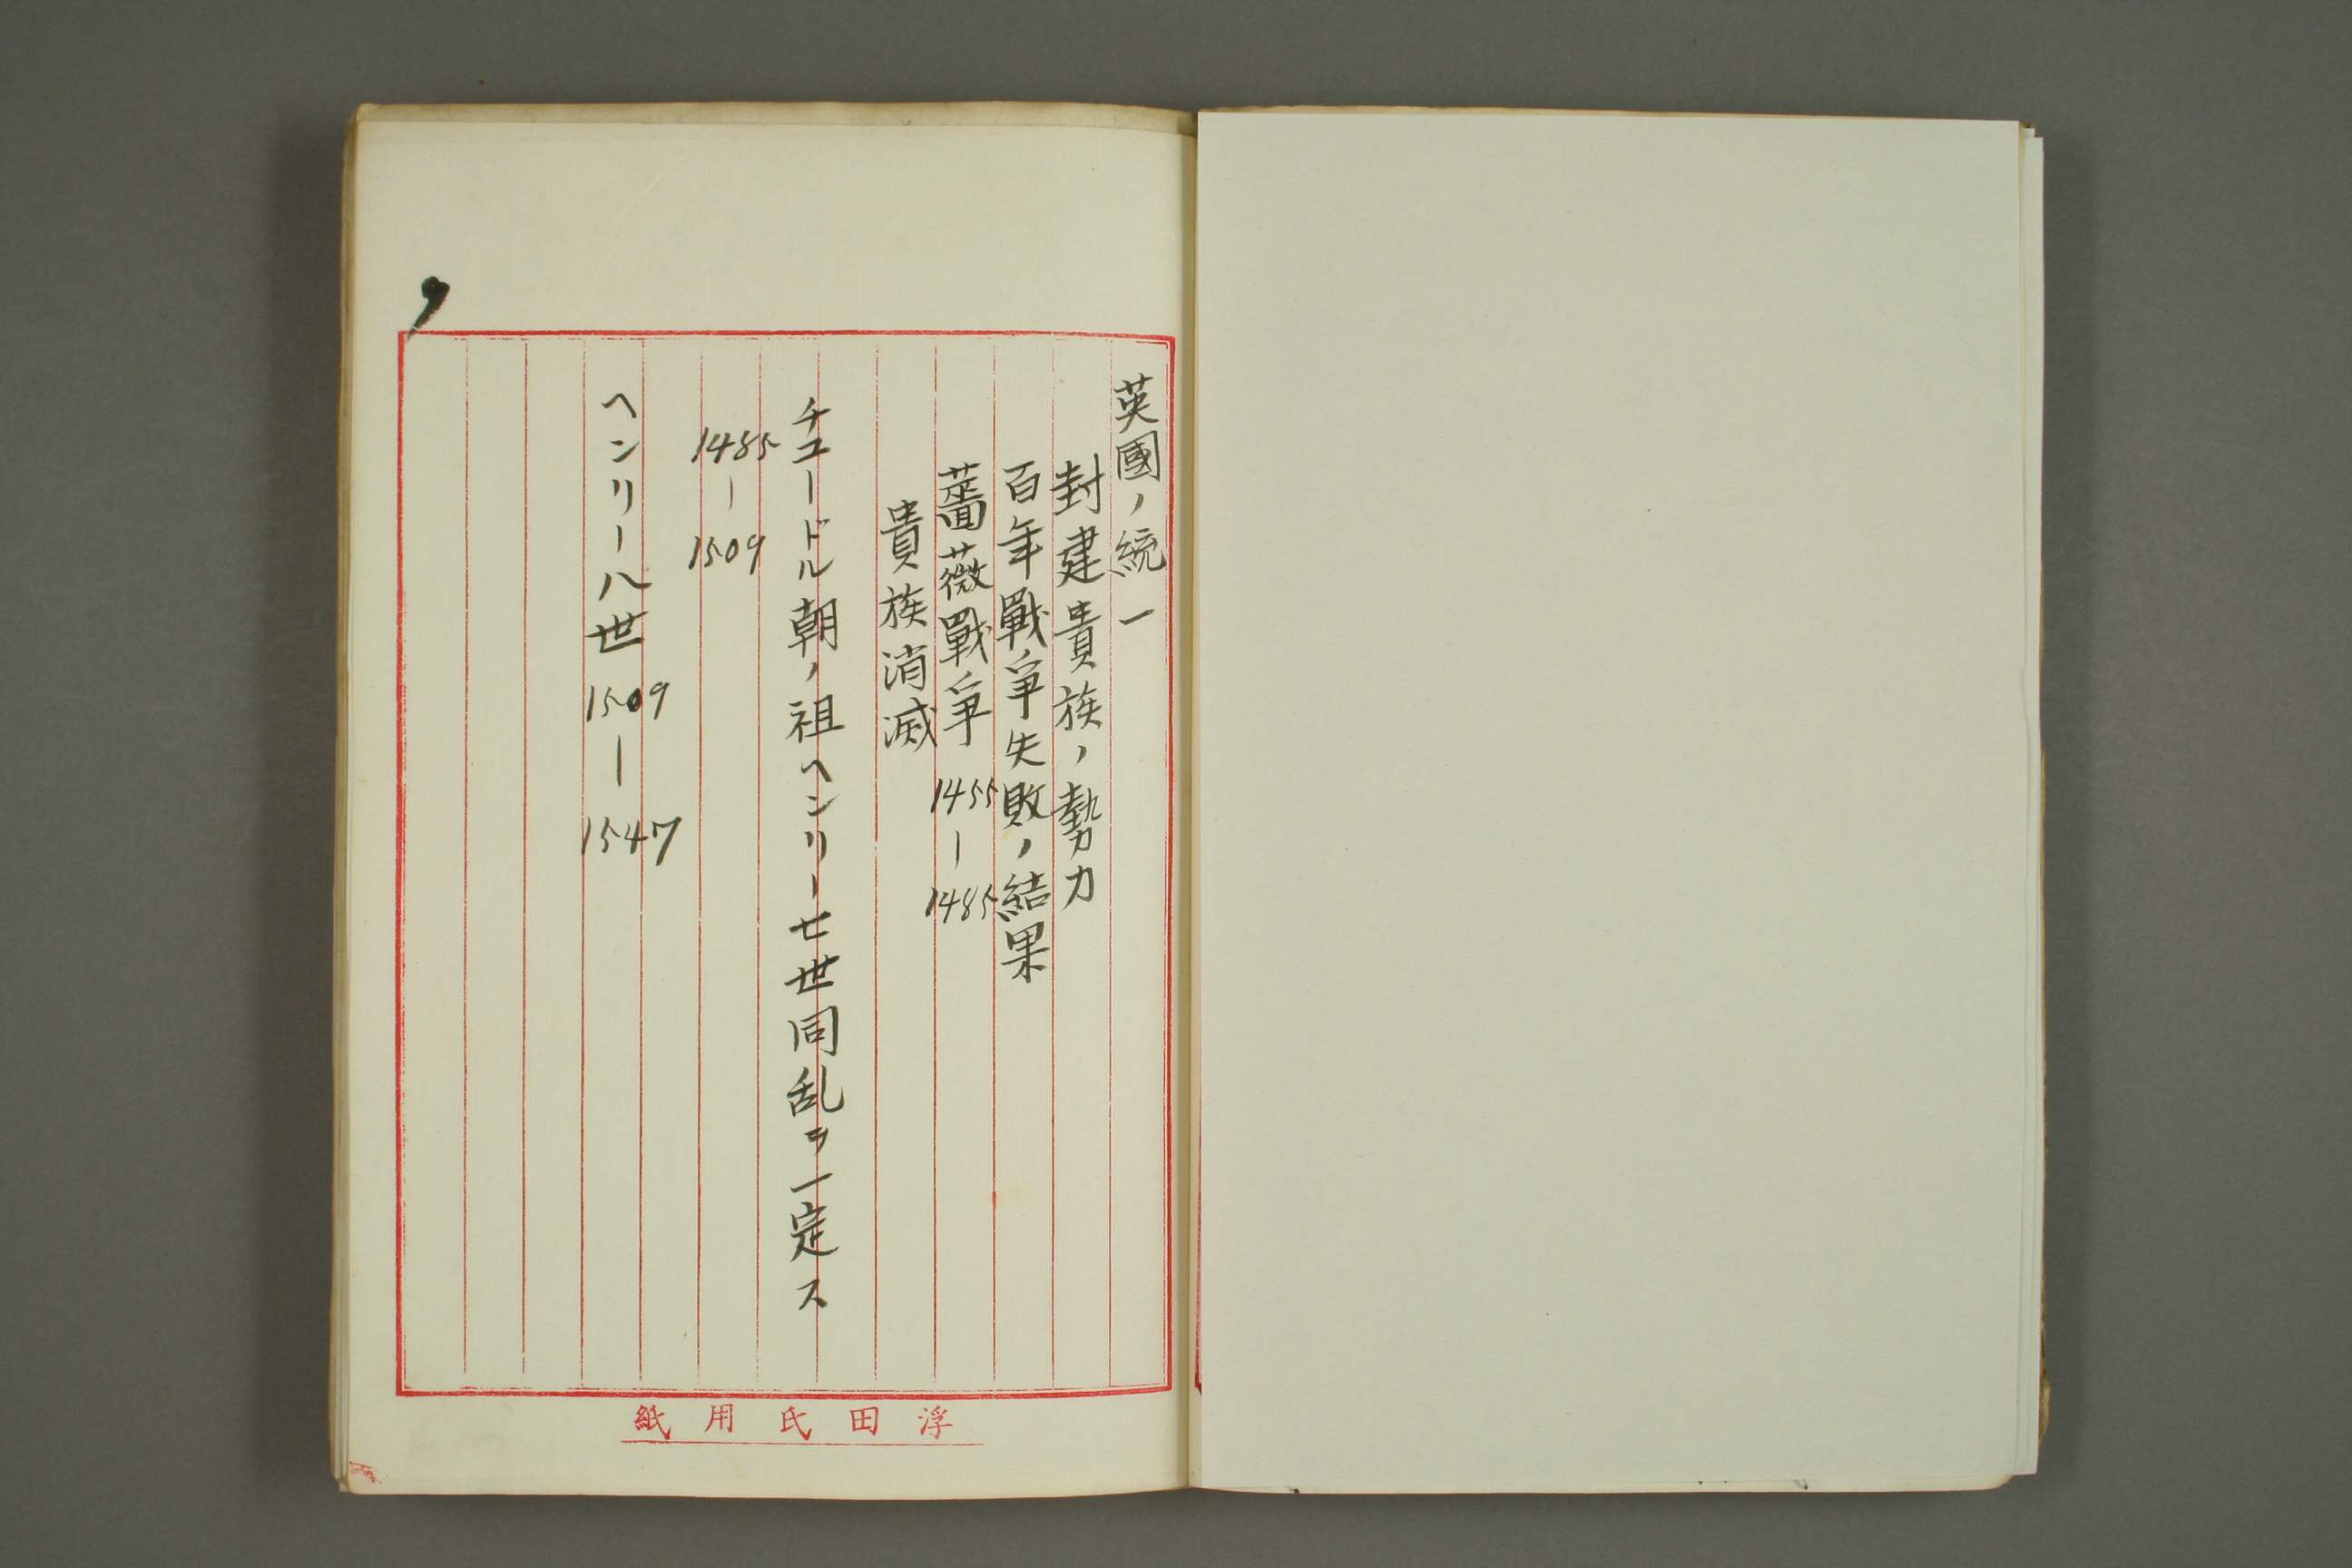 英國ノ統一
封建貴族ノ勢力
百年戰爭失敗ノ結果
薔薇戰爭 1455―1485
貴族消滅
チュードル朝ノ祖ヘンリー七世同乱ヲ一定ス
1485―1509
ヘンリー八世 1509―1547
浮田氏用紙